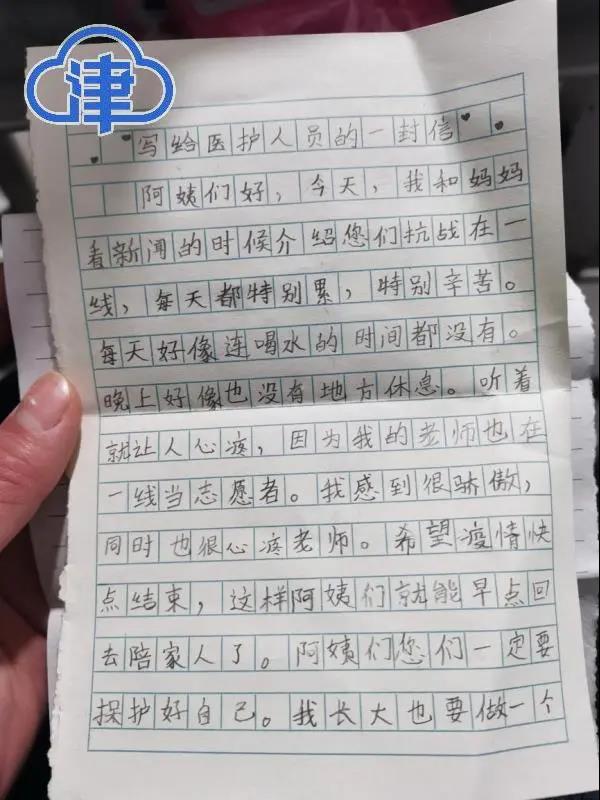 津
写给医护人员的一封信
阿姨们好，今天，我和妈妈
看新闻的时候介绍您们抗战在一
线，每天都特别累，特别辛苦。
每天好像连喝水的时间都没有。
晚上好像也没有地方休息。听着
就让人心疼，因为我的老师也在
一线当志愿者。我感到很骄傲，
同时也很心疼老师。希望疫情快
点结束，这样阿姨们就能早点回
去陪家人了。阿姨们您们一定要
保护好自己。我长大也要做一个